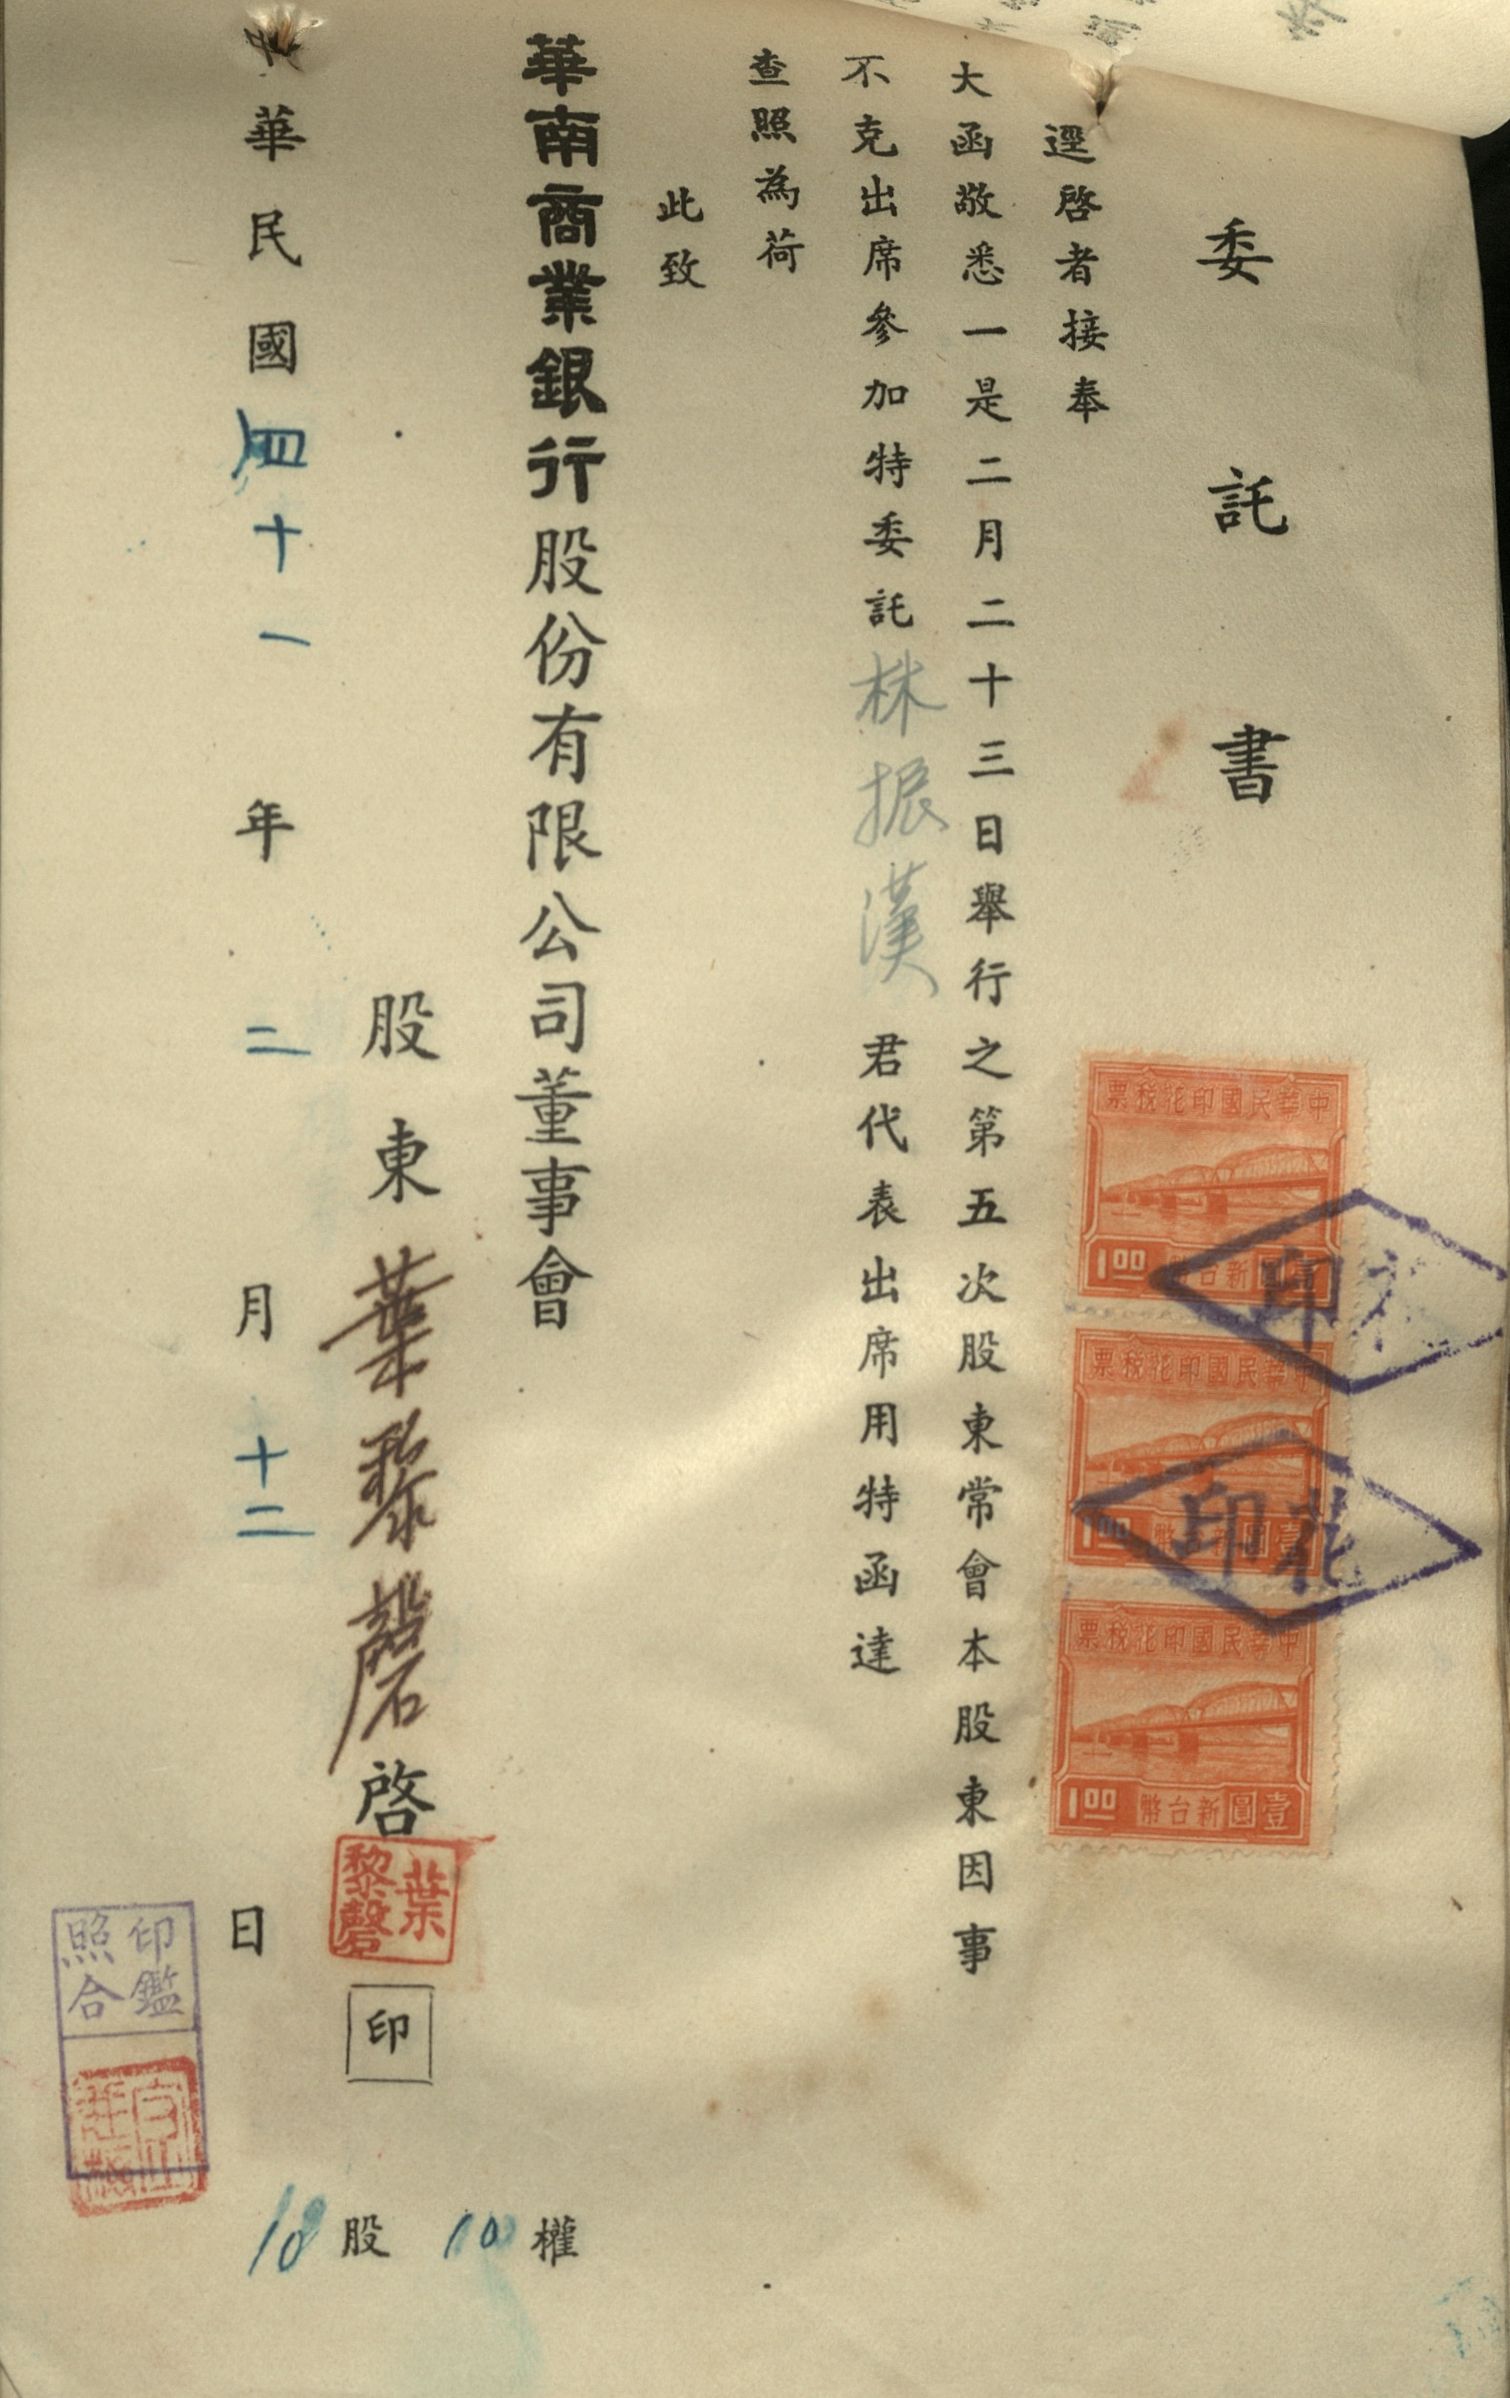 委託書
逕啓者接奉
大函敬悉一是二月二十三日舉行之第五次股東常會本股東因事
不克出席參加特委託林振漢君代表出席用特函達
查照為荷
此致
華南商業銀行股份有限公司董事會
股東葉黎磬啓
葉黎磬
印
華民國四十一年二月十二日
10股10權
印鑑照合
中華民國印花稅票
1.00 新台幣壹圓
中華民國印花稅票
1.00 新台幣壹圓
中華民國印花稅票
1.00 新台幣壹圓
印花
印花